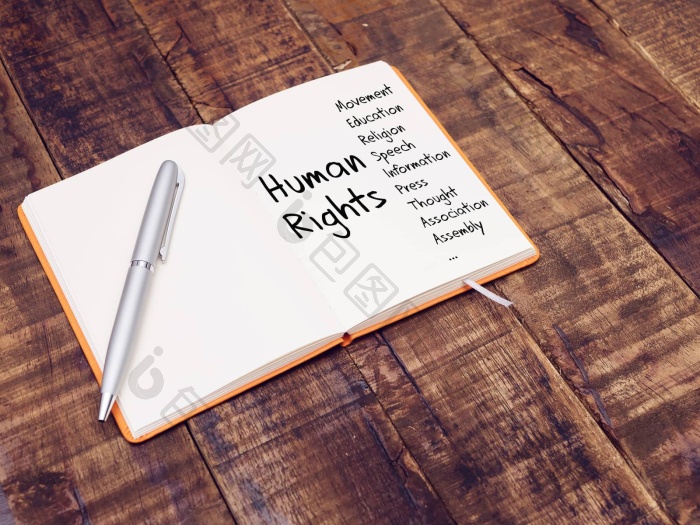 Human
Rights
Movement
Education
Religion
Speech
Information
Press
Thought
Association
Assembly
...
包图网
包图网